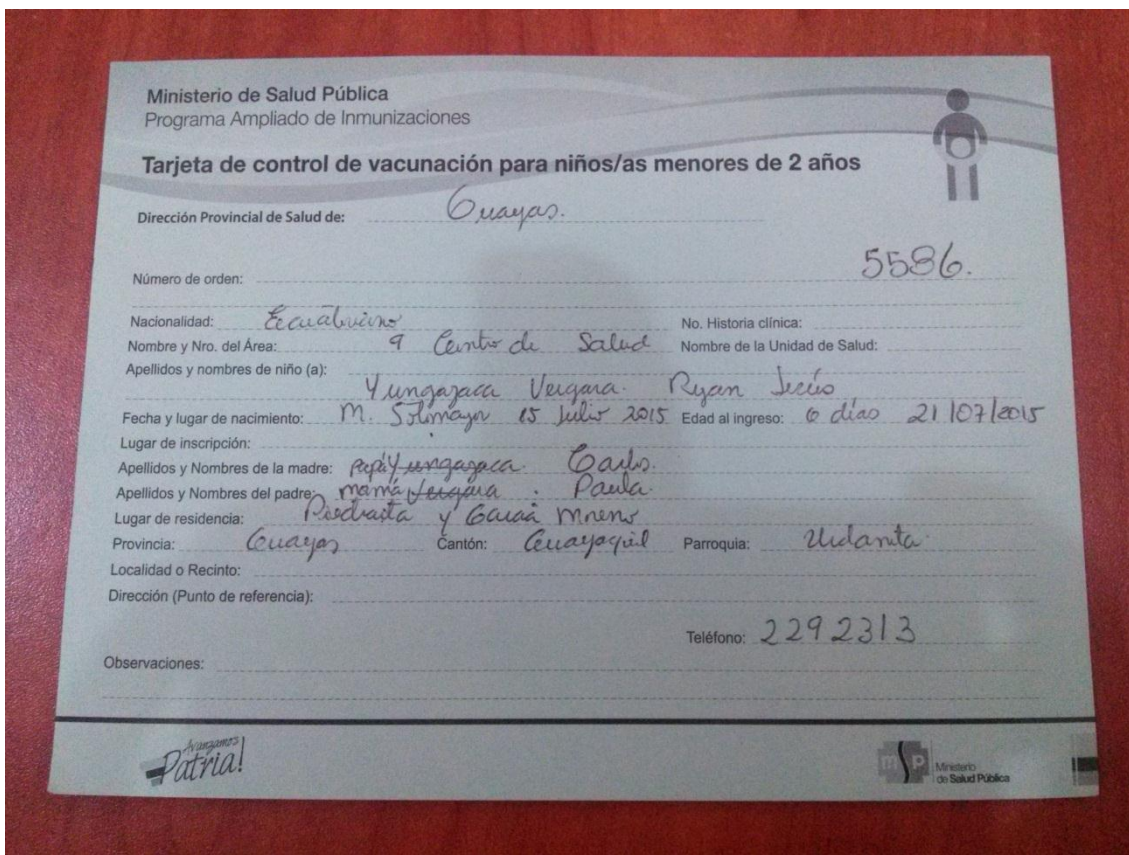 Ministerio de Salud Pública
Programa Ampliado de Inmunizaciones
Tarjeta de control de vacunación para niños/as menores de 2 años
Dirección Provincial de Salud de: Guayas.
5586.
Número de orden:
Nacionalidad: Ecuatoriano No. Historia clínica:
Nombre y Nro. del Área: 9 Centro de Salud Nombre de la Unidad de Salud:
Apellidos y nombres de niño (a):
Yungazaca Vergara. Ryan Jesús
Fecha y lugar de nacimiento: M. 15 Julio 2015 Edad al ingreso: 6 días 21/07/2015
Lugar de inscripción:
Apellidos y Nombres de la madre: papá Yungazaca. Carlos.
Apellidos y Nombres del padre: mamá Vergara. Paula.
Lugar de residencia: Piedrahita y García Moreno
Provincia: Guayas Cantón: Guayaquil Parroquia:
Localidad o Recinto:
Dirección (Punto de referencia):
Teléfono: 2292313
Observaciones:
Avanzamos
Patria!
msp Ministerio
de Salud Pública